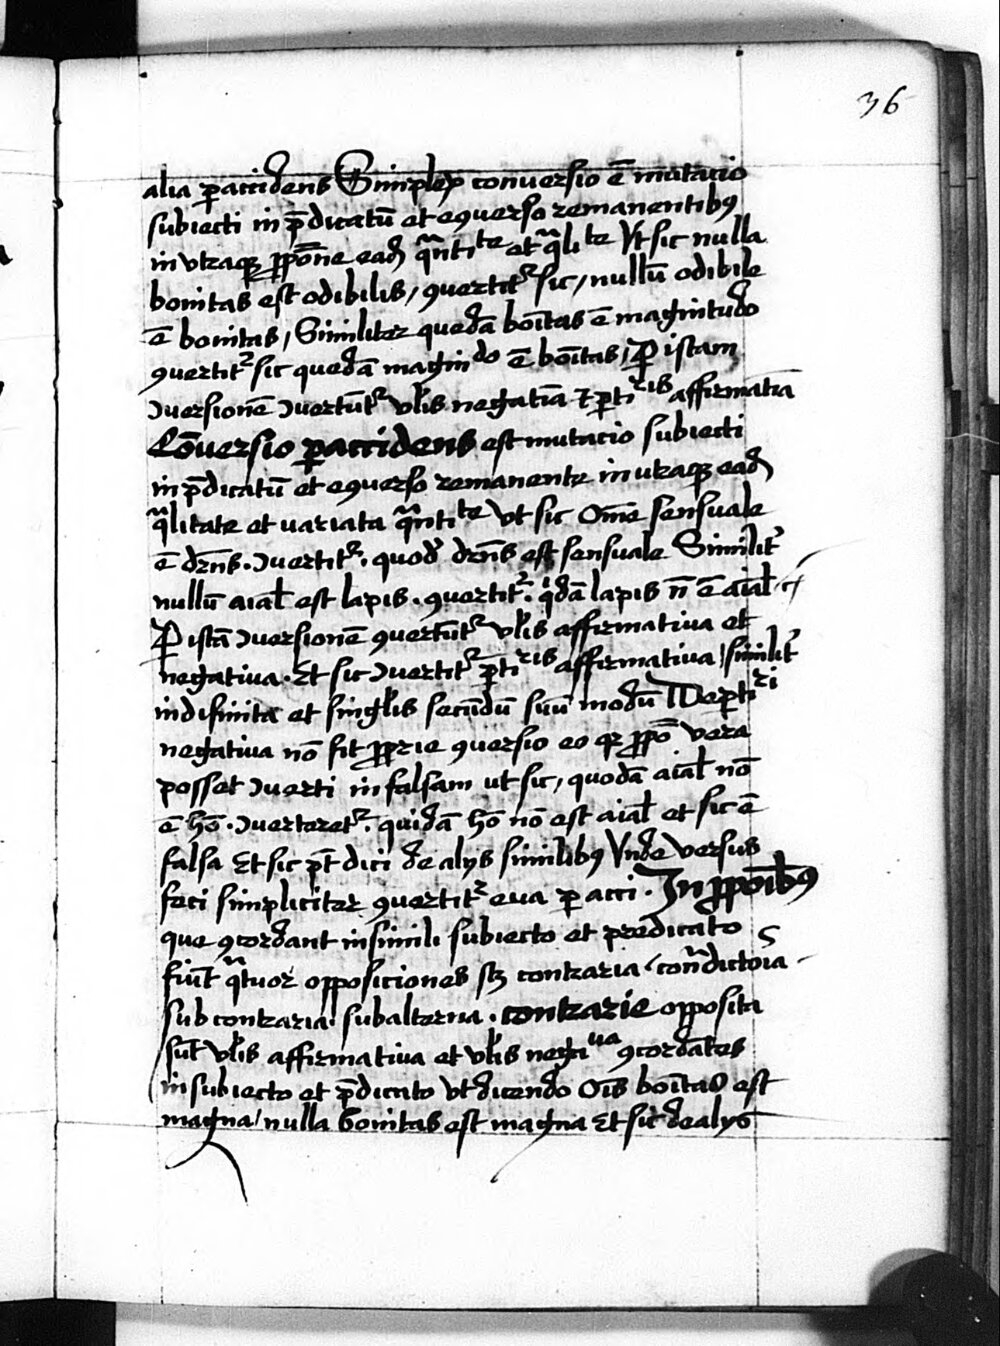 36
alia p accidens Simplex conuersio ē mutacio
subiecti in p̄dicatū et eꝯuerso remanentibꝰ
in vtraqꝫ ꝓpōne eadē q̄ntite et q̄lite Vt sic nulla
bonitas est odibilis / ꝯuertitr sic / nullū odibile
ē bonitas / Similiter quedā boītas ē magnitudo
ꝯuertitr sic quedā magindo ē boītas / P istam
ꝯuersionē ꝯuertūtr vlis negatiā ⁊ ꝑtiris affirmatīa
Cōuersio p accidens est mutacio subiecti
in p̄dicatū et eꝯuerso remanente in vtraqꝫ eadē
q̄litate et uariata q̄ntite vt sic Omē sensuale
ē dr̄ns . ꝯuertitr . quod dr̄ns est sensuale Similitr
nullū aīal est lapis . ꝯuertitr . qidā lapis n̄ ē aīal
P istā ꝯuersionē ꝯuertūtr vlis affirmatiua et
negatiua . Et sic ꝯuertitr ꝑtiris affirmatiua / similitr
indifinita et singlis secūdū suū modū De ꝑtiri
negatiua nō fit ꝓprie ꝯuersio eo qꝛ ꝓpō vera
posset ꝯuerti in falsam ut sic / quodā aīal nō
ē hō . ꝯuerteretr . quidā hō nō est aīal et sic ē
falsa Et sic pt̄ dici de alys similibꝰ Vnde versus
feci simpliciter ꝯuertitr eua p acci . In ꝓpoībꝰ
que ꝯcordant in simili subiecto et predicato
fiūt qtuor opposiciones sꝫ contraria / cont̄dictoīa
subcontraria / subalterna . contrarie opposita
sūt vlis affirmatiua et vlis negatiua ꝯcordātes
in subiecto et p̄dicato vt dicendo Oīs boītas est
magna / nulla bonitas est magna Et sic de alys